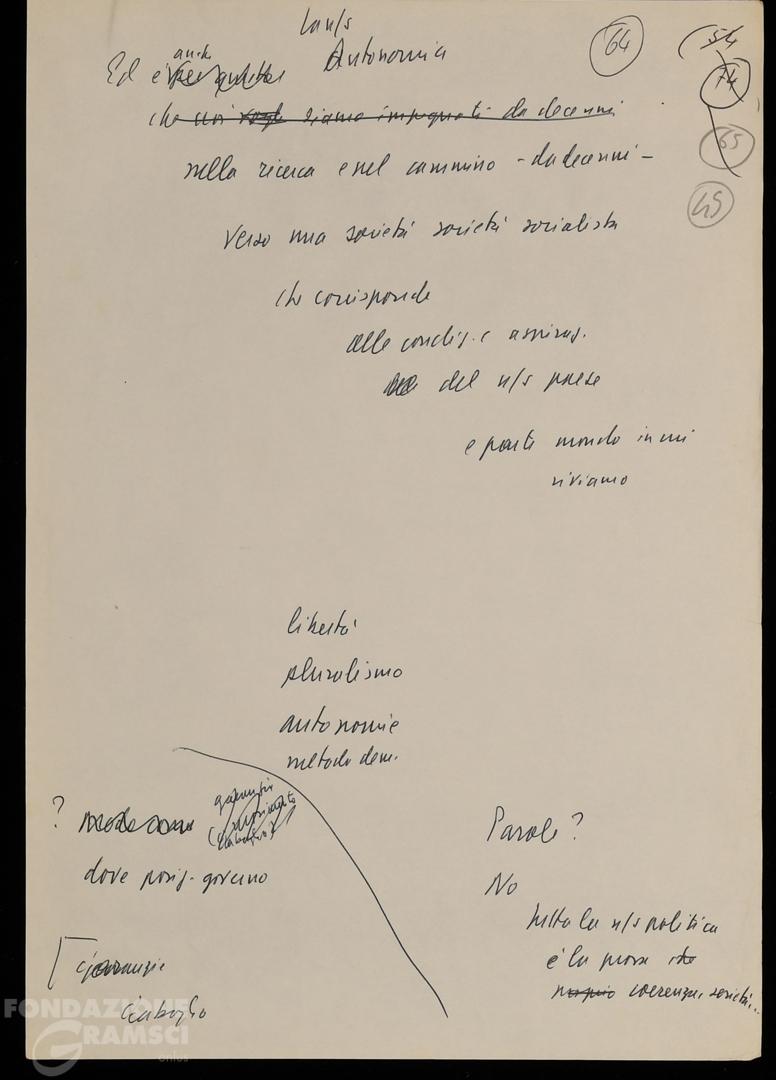 La n/s
Autonomia
64
54
74
65
49
Ed è anche
che noi siamo impegnati da decenni
nella ricerca e nel cammino - da decenni -
verso una società società socialista
che corrisponde
alle condiz. e aspiraz.
del n/s paese
e parte mondo in cui
viviamo
libertà
pluralismo
autonomie
metodo dem.
?
garanzie
dove posiz. governo
garanzie
Parole?
No
tutta la n/s politica
è la prova
coerenza, serietà...
FONDAZIONE
GRAMSCI
onlus